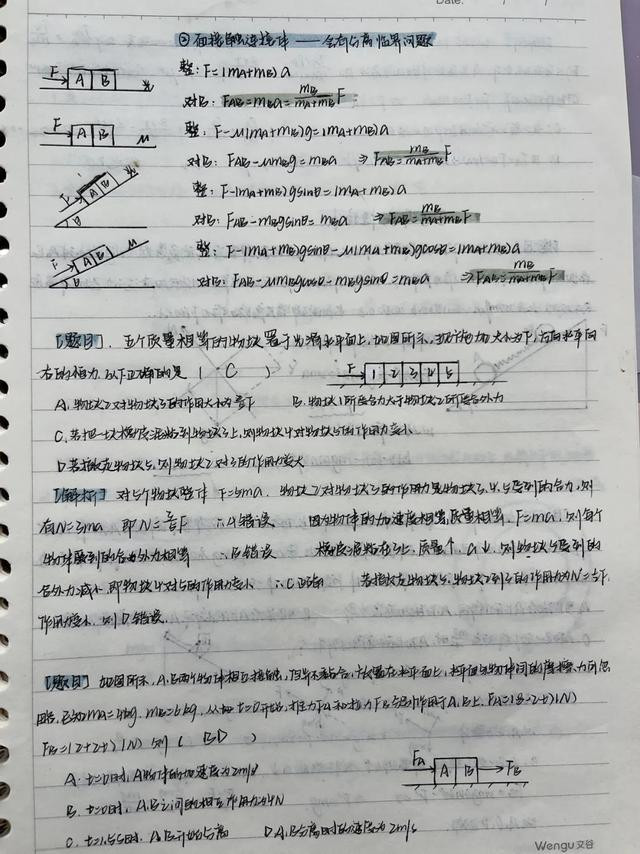 Date.
②面接触连接体——会有分离临界问题
F A B 光 整:F=(mA+mB)a
对B:FAB=mBa=mB/(mA+mB)F
F A B μ 整:F-μ(mA+mB)g=(mA+mB)a
对B:FAB-μmBg=mBa ⇒FAB=mB/(mA+mB)F
F A B 光 θ 整:F-(mA+mB)gsinθ=(mA+mB)a
对B:FAB-mBgsinθ=mBa ⇒FAB=mB/(mA+mB)F
F A B μ θ 整:F-(mA+mB)gsinθ-μ(mA+mB)gcosθ=(mA+mB)a
对B:FAB-μmBgcosθ-mBgsinθ=mBa ⇒FAB=mB/(mA+mB)F
[题目].五个质量相等的物块置于光滑水平面上,如图所示,现施加大小为F,方向水平向
右的恒力.以下正确的是( C ) F 1 2 3 4 5
A.物块2对物块3的作用力大小为 F B.物块1所受合力大于物块2所受合外力
C.若把一块橡皮泥粘到物块3上,则物块4对物块5的作用力变小
D.若撤去物块5,则物块2对3的作用力变大
[解析] 对5个物块整体 F=5ma. 物块2对物块3的作用力是物块3.4.5受到的合力,则
有N=3ma 即N= F ∴A错误 因为物体的加速度相等,质量相等,F=ma,则每个
物体受到的合外力相等 ∴B错误 橡皮泥粘在3上,质量个,a↓,则物块5受到的
合外力减小,即物块4对5的作用力变小 ∴C正确 若撤去物块5,物块2对3的作用力为N'= F,
作用力变小,则D错误.
[题目] 如图所示,A,B两个物体相互接触,但并不黏合,放置在水平面上,水平面与物体间的摩擦力可忽
略,已知mA=4kg,mB=6kg,从 t=0开始,推力FA和拉力FB分别作用于A,B上,FA=(8-2t)(N)
FB=(2+2t)(N) 则( BD )
A.t=0时,A物体的加速度为2m/s² FA A B FB
B.t=0时,A,B之间的相互作用力为4N
C.t=1.5s时,A,B开始分离 D.A,B分离时的速度为2m/s
Wengu文谷